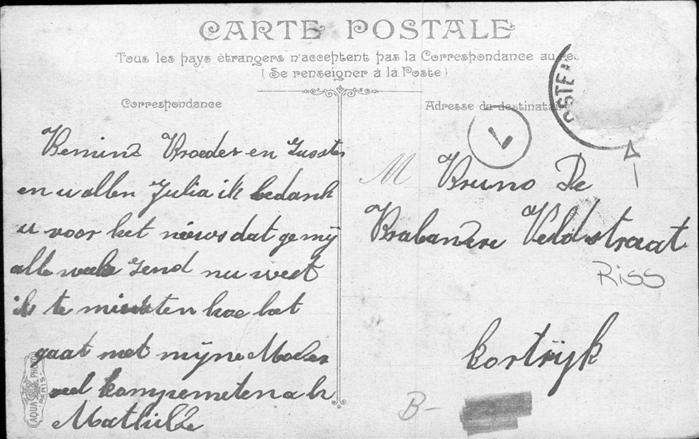 CARTE POSTALE
Tous les pays étrangers n'acceptent pas la Correspondance au
(Se renseigner à la Poste)
Correspondance
Adresse du destinat
OSTE
1
Bemind Broeder en Zuster
en u allen Julia ik bedank
u voor het nieuws dat ge mij
alle weeke zend nu weet
ik te minsten hoe het
gaat met mijne Moeder
veel
Mathilde
M Bruno De
Brabandere Veldstraat
Riss
Kortrijk
B-